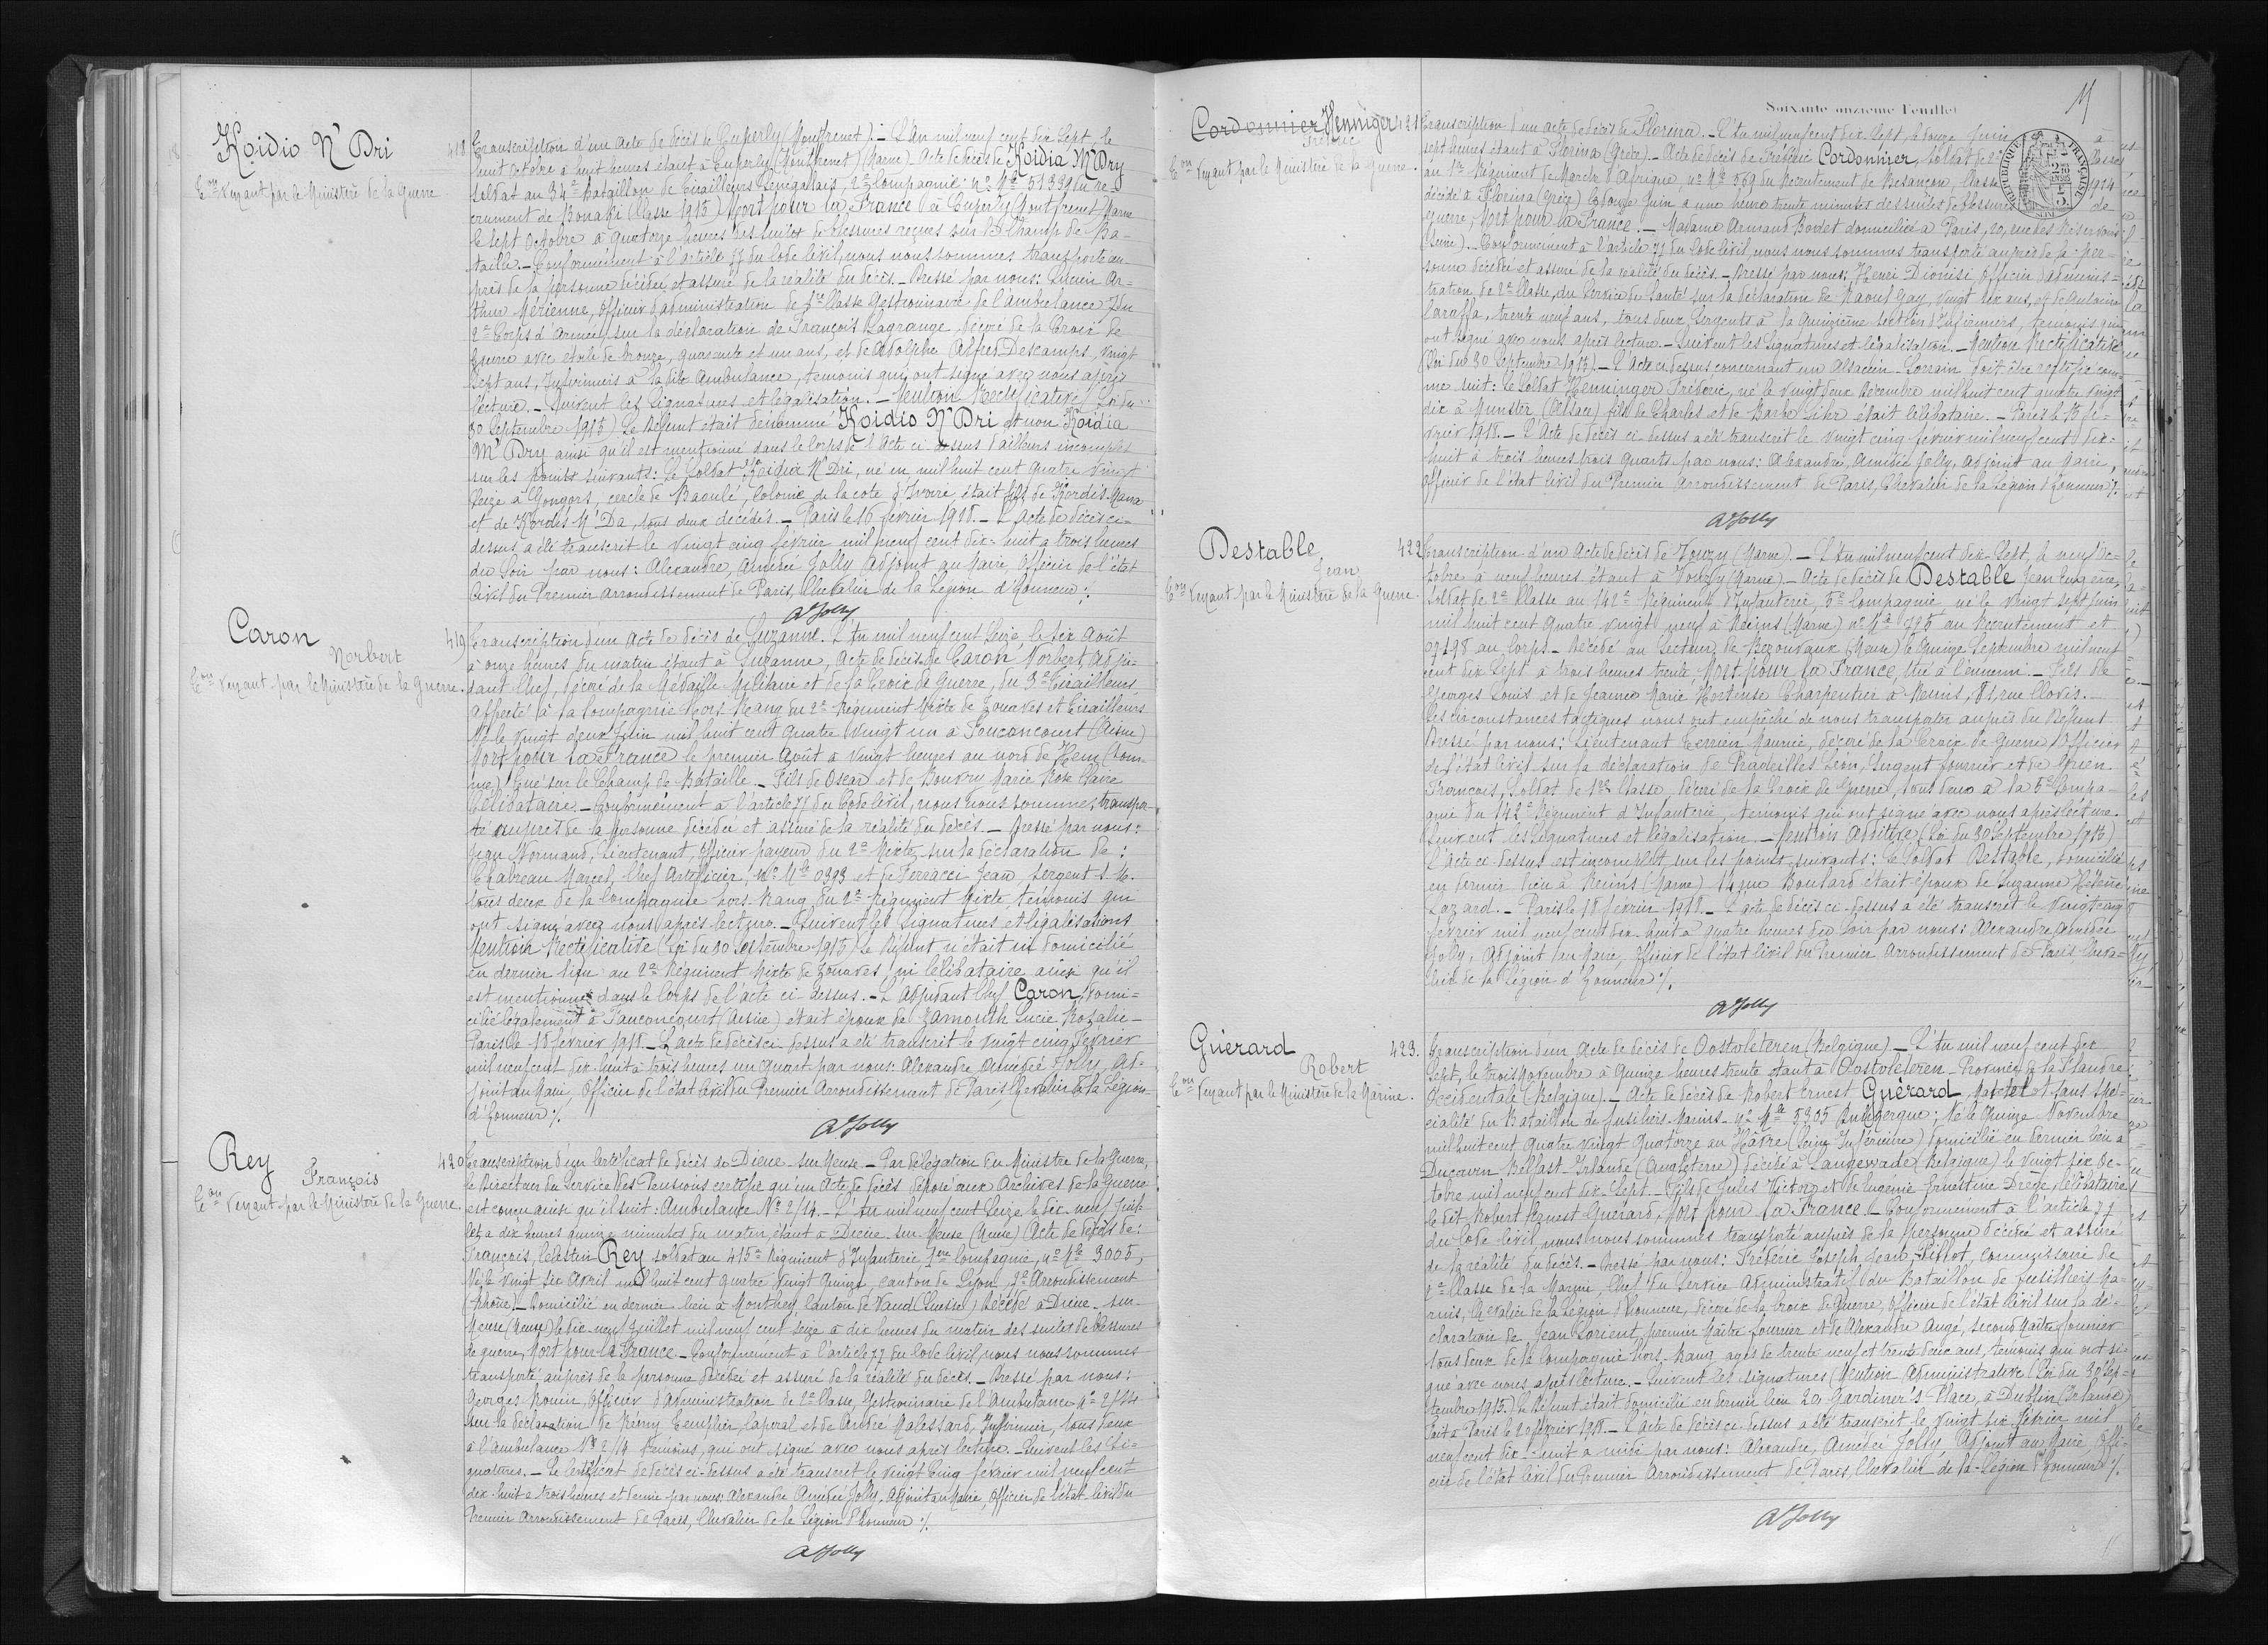 Koidio N'Dri
418
Con Venant par le Ministre de la Guerre
Transcription d'un acte de décès de Cuperly (Montfrenet). - L'An mil neuf cent dix sept le
huit octobre à huit heures étant à Cuperly (Montfrenet) (Marne) Acte de décès de Koidia M'Dry
soldat au 34e Bataillon de Tirailleurs Sénégalais, 2e Compagnie: no Mle 51339 du re-
crument de Bouaki (Classe 1915) Mort pour la France à Cuperly Montfrenet Marne
le sept octobre à quatorze heures des suites de blessures reçues sur le Champ de Ba-
taille. - Conformément à l'article 77 du Code Civil, nous nous sommes transporté au-
près de la personne décédée et assuré de la réalité du décès. - Dressé par nous: Lucien Ar-
thur Mérienne, Officier d'administration de 1re Classe Gestionnaire de l'ambulance
2e Corps d'armée, sur la déclaration de François Lagrange, décoré de la Croix de
guerre avec étoile de bronze, quarante et un ans, et de Adolphe Alfred Descamps, vingt
sept ans, Infirmiers à la dite Ambulance, témoins qui ont signé avec nous après
lecture. - Suivent les signatures et légalisation. - Mention Rectificative (Loi du
30 Septembre 1915) Le Défunt était dénommé Koidio N'Dri et non Koidia
M'Dry ainsi qu'il est mentionné dans le corps de l'acte ci-dessus d'ailleurs incomplet
sur les points suivants: Le Soldat Koidio N'Dri, né en mil huit cent quatre vingt
seize à Gongors, cercle de Baoulé, Colonie de la cote d'Ivoire, était fils de Kordis
et de Kordis N'Da, tous deux décédés. - Paris le 16 février 1918. - L'acte de décès ci-
dessus a été transcrit le vingt cinq février mil neuf cent dix-huit à trois heures
du soir par nous: Alexandre, Amédée Jolly Adjoint au Maire, Officier de l'état
Civil du Premier arrondissement de Paris, Chevalier de la Légion d'Honneur ./.
AJolly
Caron
Norbert
419
Con Venant par le Ministre de la Guerre.
Transcription d'un acte de décès de Suzanne. L'An mil neuf cent Seize, le six Août
à onze heures du matin étant à Suzanne, acte de décès de Caron Norbert Adju-
dant Chef, décoré de la Médaille Militaire et de la Croix de Guerre, du 3e Tirailleurs
affecté à la Compagnie Hors Rang du 2e Régiment Mixte de Zouaves et Tirailleurs
Né le vingt deux Juin mil huit cent quatre vingt un à (Aisne)
Mort pour la France le premier Août à vingt heures au nord de Hem (Som-
me) Tué sur le Champ de Bataille. - Fils de Oscar et de Bouvry Marie Rose Claire
Célibataire. - Conformément à l'article 77 du Code Civil, nous nous sommes transpor-
té auprès de la personne décédée et assuré de la réalité du décès. - Dressé par nous:
Jean Normand, Lieutenant, Officier payeur du 2e Mixte, sur la déclaration de:
Chabreau Marcel, Chef Artificier, no Mle 0393 et de Ferracci Jean, Sergent
tous deux de la Compagnie hors-Rang du 2e régiment Mixte témoins qui
ont signé avec nous après lecture. - Suivent les signatures et légalisations
Mention Rectificative (Loi du 30 Septembre 1915) Le Défunt n'était ni domicilié
en dernier lieu au 2e Régiment Mixte de Zouaves, ni célibataire ainsi qu'il
est mentionné dans le Corps de l'acte ci-dessus. - L'Adjudant Chef Caron, domi-
cilié légalement à Fauconcourt (Aisne) était époux de Zamouth Lucie Rozalie -
Paris le 18 février 1918. - L'acte de décès ci-dessus a été transcrit le vingt cinq Février
mil neuf cent dix huit à trois heures un quart par nous: Alexandre Amédée Jolly, Ad-
joint au Maire, Officier de l'état Civil du Premier Arrondissement de Paris, Chevalier de la Légion
d'Honneur ./.
AJolly
Rey
François
420
Con Venant par le Ministre de la Guerre.
Transcription d'un Certificat de décès de Dieue-sur-Meuse - Par délégation du Ministre de la Guerre,
le Directeur du Service des Pensions certifie qu'un Acte de décès déposé aux Archives de la Guerre
est conçu ainsi qu'il suit: Ambulance No 2/14. - L'An mil neuf cent Seize le dix-neuf Juil-
let à dix heures quinze minutes du matin, étant à Dieue-sur-Meuse (Meuse) Acte de décès de:
François, Célestin Rey soldat au 415e Régiment d'Infanterie, 1ère Compagnie, no Mle 3005,
Né le vingt six Avril mil huit cent quatre vingt quinze, canton de Lyon, 2e Arrondissement
(Rhône). - Domicilié en dernier lieu à Monthey, Canton de Vaud (Suisse) Décédé à Dieue-sur-
Meuse (Meuse) le dix-neuf Juillet mil neuf cent Seize à dix heures du matin des suites de blessures
de guerre, Mort pour la France - Conformément à l'article 77 du Code Civil, nous nous sommes
transporté auprès de la personne décédée et assuré de la réalité du décès. - Dressé par nous:
Georges Rouin, Officier d'Administration de 2e Classe, Gestionnaire de l'Ambulance no 2/14
sur la déclaration de Rémy Templier, Caporal et de André Malessard, Infirmier, tous deux
à l'ambulance No 2/14 témoins, qui ont signé avec nous après lecture. - Suivent les si-
gnatures. - Le Certificat de décès ci-dessus a été transcrit le vingt Cinq février mil neuf cent
dix-huit à trois heures et demie par nous: Alexandre Amédée Jolly, Adjoint au Maire, Officier de l'état-Civil du
Premier Arrondissement de Paris, Chevalier de la Légion d'Honneur ./.
AJolly
Soixante onzième Feuillet
71
RÉPUBLIQUE FRANÇAISE
SEINE
Cordonnier Henniger
Fréderic
421
Con Venant par le Ministre de la Guerre.
Transcription d'un acte de décès de Florina. - L'An mil neuf cent dix-sept le douze Juin à
sept heures étant à Florina (Grèce). - Acte de décès de Frédéric Cordonnier, Soldat de 2e Classe
au 1er Régiment de Marche d'Afrique, no Mle 569 du Recrutement de Besançon, Classe 1914
décédé à Florina (Grèce) le douze Juin à une heure trente minutes des suites de blessures de
guerre, Mort pour la France. - Madame Armand Bordet domiciliée à Paris, 20, rue des Réservoirs
(Seine). - Conformément à l'article 77 du Code Civil nous nous sommes transporté auprès de la per-
sonne décédée et assuré de la réalité du décès. - Dressé par nous: Henri Dionisi, Officier d'adminis-
tration de 2e Classe, du Service de Santé sur la déclaration de Raoul Gay, vingt six ans, et de Antoine
Caraffa, trente neuf ans, tous deux Sergents à la quinzième section d'Infirmiers, témoins qui
ont signé avec nous après lecture. - Suivent les signatures et légalisation. - Mention Rectificative
(Loi du 30 Septembre 1915). - L'Acte ci-dessus concernant un Alsacien-Lorrain doit être rectifié com-
me suit: Le Soldat Henninger Fréderic, né le vingt deux Décembre mil huit cent quatre vingt
dix à Munster (Alsace) fils de Charles et de Barbe était célibataire. - Paris le 15 fé-
vrier 1918. - L'Acte de décès ci-dessus a été transcrit le vingt cinq février mil neuf cent dix-
huit à trois heures trois quarts par nous: Alexandre, Amédée Jolly, Adjoint au Maire,
Officier de l'état Civil du Premier Arrondissement de Paris, Chevalier de la Légion d'Honneur ./.
AJolly
Destable,
Jean
422
Con Venant par le Ministre de la Guerre.
Transcription d'un Acte de décès de Vouzy (Marne). - L'An mil neuf cent dix-Sept, le neuf Oc-
tobre à neuf heures étant à Vouzy (Marne). - Acte de décès de Destable Jean Eugène,
Soldat de 2e Classe au 142e Régiment d'Infanterie, 5e Compagnie, né le vingt sept Juin
mil huit cent quatre vingt neuf à Reims (Marne) no Mle 725 au Recrutement et
09198 au Corps. - Décédé au Secteur de Bezonvaux (Meuse) le quinze Septembre mil neuf
cent dix sept à trois heures trente, Mort pour la France, tué à l'ennemi. - Fils de
Georges Louis et de Jeanne Marie Hortense Charpentier à Reims, 81, rue Clovis. -
Les circonstances tactiques nous ont empêché de nous transporter auprès du Défunt
Dressé par nous: Lieutenant Terrier Maurice, décoré de la Croix de Guerre, Officier
de l'état Civil sur la déclaration de Pradeilles Léon, Sergent fourrier et de Grien
François, Soldat de 1re Classe, décoré de la Croix de Guerre, tous deux à la 5e Compa-
gnie du 142e Régiment d'Infanterie, témoins qui ont signé avec nous après lecture.
Suivent les signatures et légalisation. - Mention Additive (Loi du 30 Septembre 1915)
L'Acte ci-dessus est incomplet sur les points suivants: Le Soldat Destable, domicilié
en dernier lieu à Reims (Marne) 14 rue Boulard était époux de Suzanne Hélène
Lazard. - Paris le 18 février 1918. - L'acte de décès ci-dessus a été transcrit le vingt cinq
février mil neuf cent dix-huit à quatre heures du soir par nous: Alexandre, Amédée
Jolly, Adjoint au Maire, Officier de l'état Civil du Premier Arrondissement de Paris Cheva-
lier de la Légion d'Honneur ./.
AJolly
Guérard
Robert
423.
Con Venant par le Ministre de la Marine.
Transcription d'un acte de décès de Oostvleteren (Belgique). - L'An mil neuf cent dix
Sept, le trois Novembre à quinze heures trente étant à Oostvleteren - Province de la Flandre
Occidentale (Belgique). - Acte de décès de Robert Ernest Guérard, Matelot sans spé-
cialité du Bataillon de fusiliers-Marins - no Mle 5305 Dunkerque; Né le Quinze Novembre
mil huit cent quatre vingt quatorze au Hâvre (Seine Inférieure) domicilié en dernier lieu à
Ducairn Belfast-Irlande (Angleterre) décédé à Langewaade (Belgique) le vingt six Oc-
tobre mil neuf cent dix-Sept. - Fils de Jules Victor et de Eugénie Ernestine Drège, célibataire
le dit Robert Ernest Guérard, Mort pour la France. - Conformément à l'article 77
du Code Civil nous nous sommes transporté auprès de la personne décédée et assuré
de la réalité du décès. - Dressé par nous: Fréderic Joseph Jean Pillot, Commissaire de
1re Classe de la Marine, Chef du Service Administratif du Bataillon de fusilliers Ma-
rins, Chevalier de la Légion d'Honneur, décoré de la Croix de Guerre, Officier de l'état Civil sur la dé-
claration de Jean Lorient, premier Maître fourrier et de Alexandre Augé, second Maître fourrier
tous deux de la Compagnie hors-Rang âgés de trente neuf et trente deux ans, témoins qui ont si-
gné avec nous après lecture. - Suivent les signatures (Mention Administrative (Loi du 30 Sep-
tembre 1915) Le Défunt était domicilié en dernier lieu 20, Gardiner's Place, à Dublin (Irlande)
Fait à Paris le 20 février 1918. - L'Acte de décès ci-dessus a été transcrit le vingt six février mil
neuf cent dix-huit à midi par nous: Alexandre, Amédée Jolly Adjoint au Maire, Offi-
cier de l'état Civil du Premier Arrondissement de Paris, Chevalier de la Légion d'Honneur ./.
AJolly